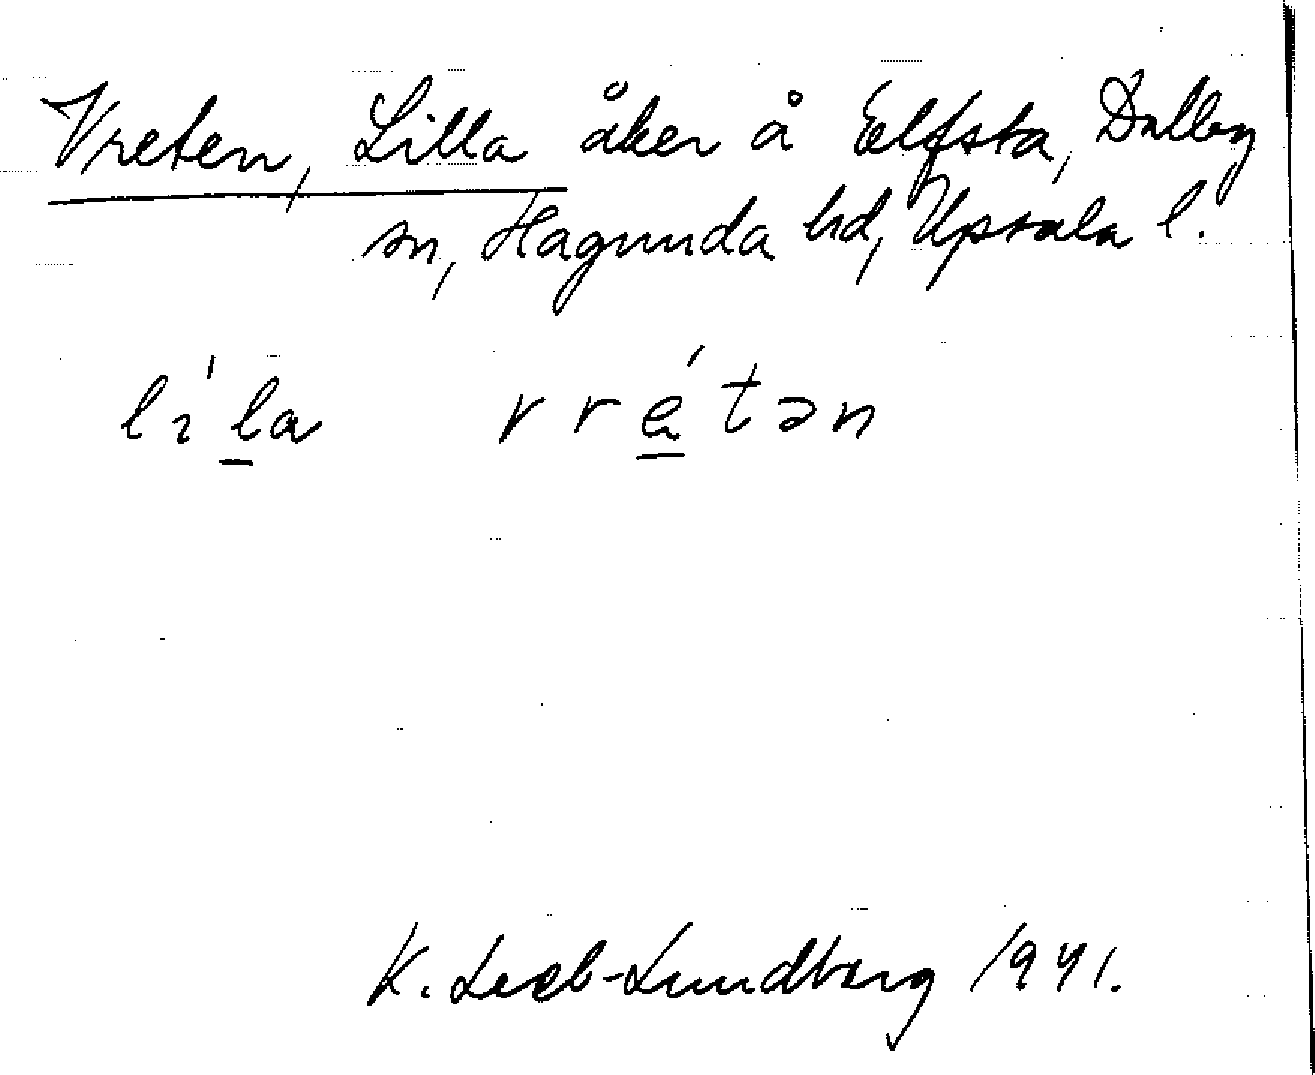 Vreten, Lilla åker å Elfsta, Dalby
sn, Hagunda hd, Upsala l.
lı́la vrétən
K. Leeb-Lundberg 1941.